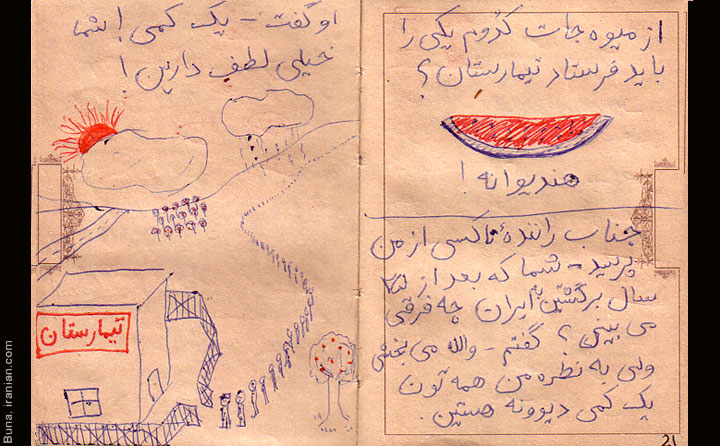 از میوه جات کدوم یکی را
باید فرستاد تیمارستان؟
هندیوانه!
جناب رانندهٔ تاکسی از من
پرسید - شما که بعد از
سال برگشتین به ایران چه فرقی
می بینی؟ گفتم - والله می بخشی
ولی به نظره من همه تون
یک کمی دیوونه هستین.
21
او گفت - یک کمی! شما
خیلی لطف دارین!
تیمارستان
Buna, iranian.com